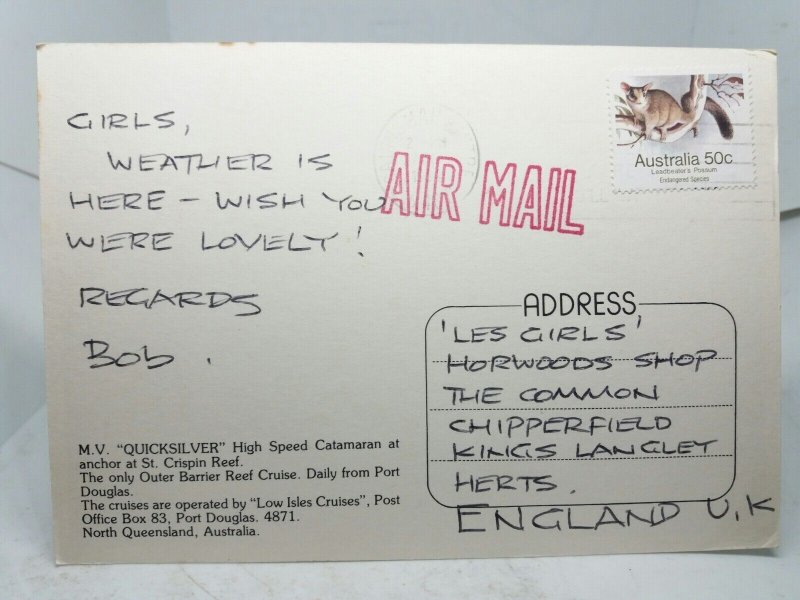 GIRLS,
WEATHER IS
HERE - WISH YOU
WERE LOVELY!
REGARDS
Bob.
M.V. "QUICKSILVER" High Speed Catamaran at
anchor at St. Crispin Reef.
The only Outer Barrier Reef Cruise. Daily from Port
Douglas.
The cruises are operated by "Low Isles Cruises", Post
Office Box 83, Port Douglas. 4871.
North Queensland, Australia.
AIR MAIL
Australia 50c
Leadbeater's Possum
Endangered Species
ADDRESS
'LES GIRLS'
HORWOODS SHOP
THE COMMON
CHIPPERFIELD
KINGS LANGLEY
HERTS.
ENGLAND U.K